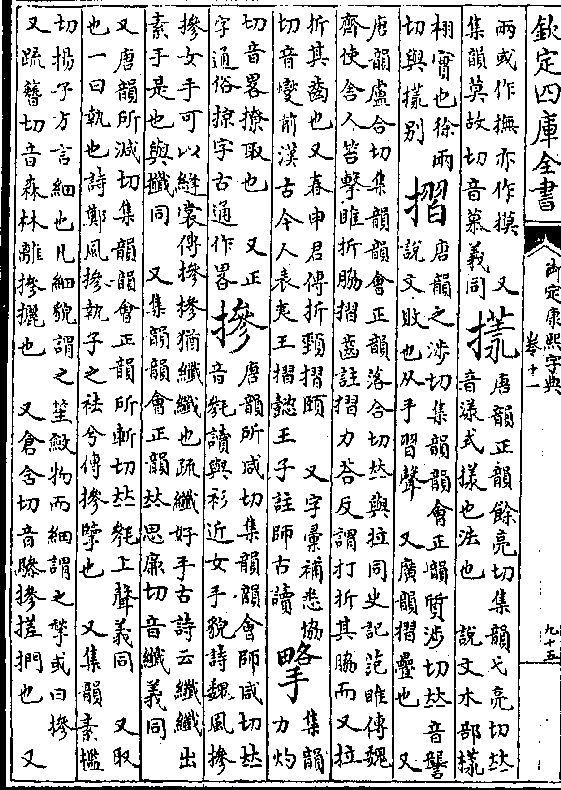 欽定四庫全書
御定康熙字典
卷十一
九十五
兩或作撫亦作摸　又
集韻莫故切音慕義同
㨾
唐韻正韻餘亮切集韻弋亮切𠀤
音漾式樣也法也　說文木部樣
栩實也徐兩
切與㨾别
摺
唐韻之涉切集韻韻會正韻質涉切𠀤音讋
說文敗也从手習聲　又廣韻摺疊也　又
唐韻盧合切集韻韻會正韻落合切𠀤與拉同史記范睢傳魏
齊使舍人笞擊睢折脇摺齒註摺力荅反謂打折其脇而又拉
折其齒也又春申君傳折頸摺頤　又字彙補悉協
切音燮前漢古今人表夷王摺懿王子註師古讀
撂
集韻
力灼
切音畧撩取也　又正
字通俗掠字古通作畧
摻
唐韻所咸切集韻韻會師咸切𠀤
音毿讀與衫近女手貌詩魏風摻
摻女手可以縫裳傳摻摻猶纖纖也疏纖好手古詩云纖纖出
素手是也與攕同　又集韻韻會正韻𠀤思廉切音纖義同
又唐韻所減切集韻韻會正韻所斬切𠀤毿上聲義同　又取
也一曰執也詩鄭風摻執子之袪兮傳摻擥也　又集韻素檻
切揚子方言細也凡細貌謂之笙斂物而細謂之揫或曰摻
又疏簪切音森林離摻攦也　又倉含切音驂摻搓捫也　又